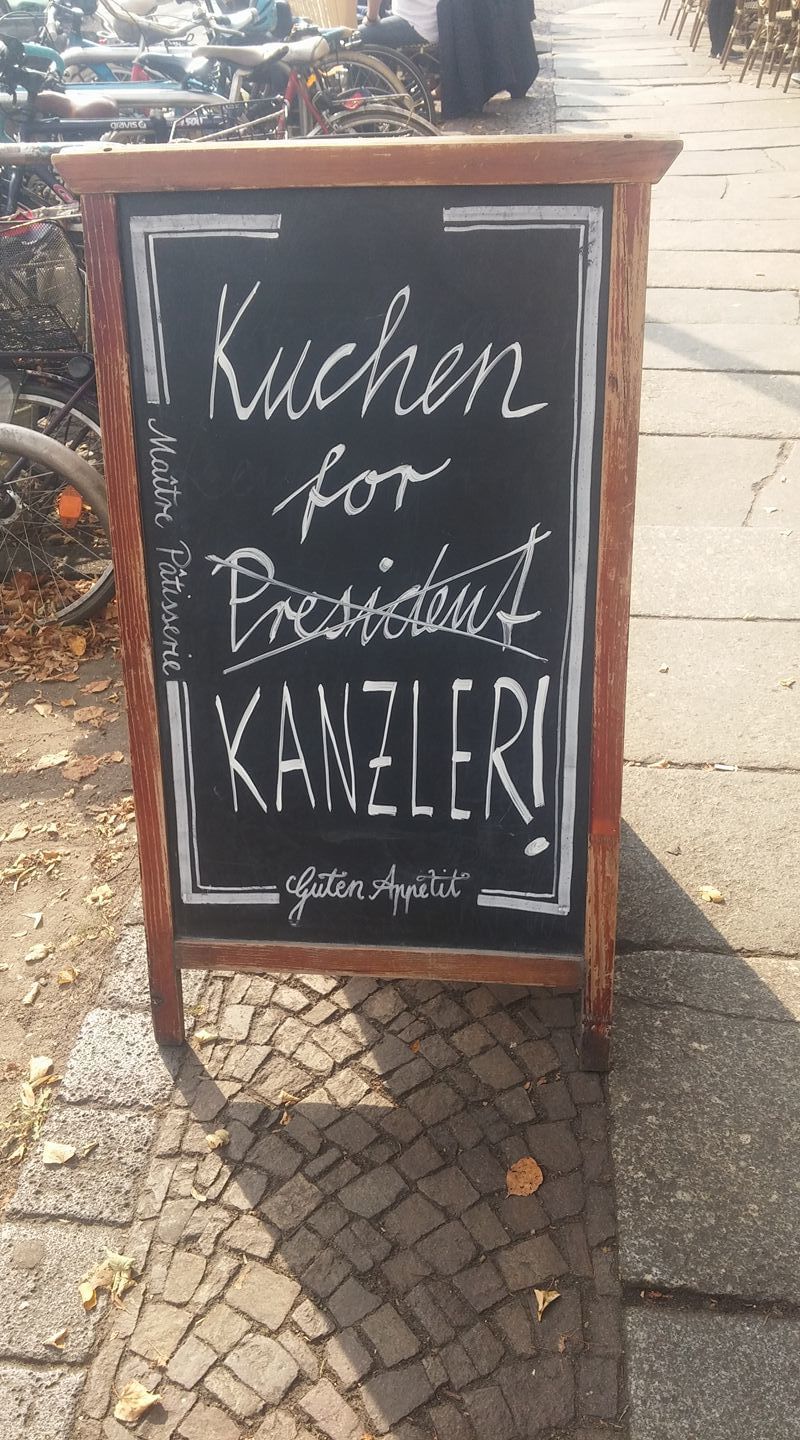 gravis
Kuchen
for
President
KANZLER!
Maître Pâtisserie
Guten Appetit